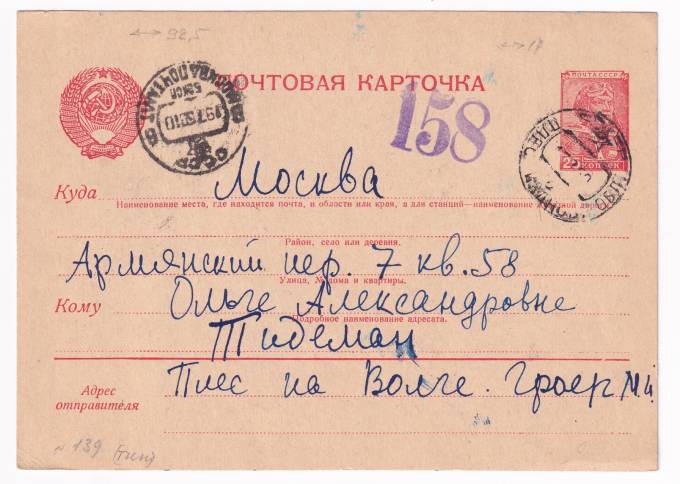 92,5
17
ПОЧТОВАЯ КАРТОЧКА
ПОЧТА СССР
25 КОПЕЕК
158
МОСКВА ПОЧТАМТ
СССР
Куда Москва
Наименование места, где находится почта, и области или края, а для станций—наименование
Район, село или деревня.
Армянский пер. 7 кв. 58
Улица, № дома и квартиры.
Кому Ольге Александровне
Подробное наименование адресата.
Тидеман
Адрес отправителя
Плес на Волге. Гроер М.И.
139